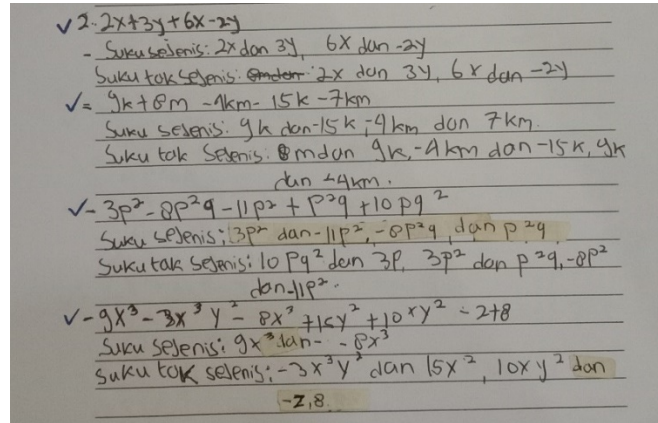 ✓ 2. 2x+3y+6x-2y
- Suku sejenis: 2x dan 3y, 6x dan -2y
Suku tak sejenis: 2x dan 3y, 6x dan -2y
✓ = 9k+8m -4km- 15k -7km
Suku sejenis: 9k dan -15k, -4km dan 7km.
Suku tak sejenis: 8m dan 9k, -4km dan -15k, 9k
dan -4km.
✓ - 3p² - 8p²q - 11p² + p²q + 10pq²
Suku sejenis: 3p² dan -11p², -8p²q dan p²q
Suku tak sejenis: 10pq² dan 3p, 3p² dan p²q, -8p²
dan -11p².
✓ - 9x³ - 3x³y² - 8x³ +15y² + 10xy² - 2+8
Suku sejenis: 9x³ dan - - 8x³
suku tak sejenis: -3x³y² dan 15x², 10xy² dan
-2,8.